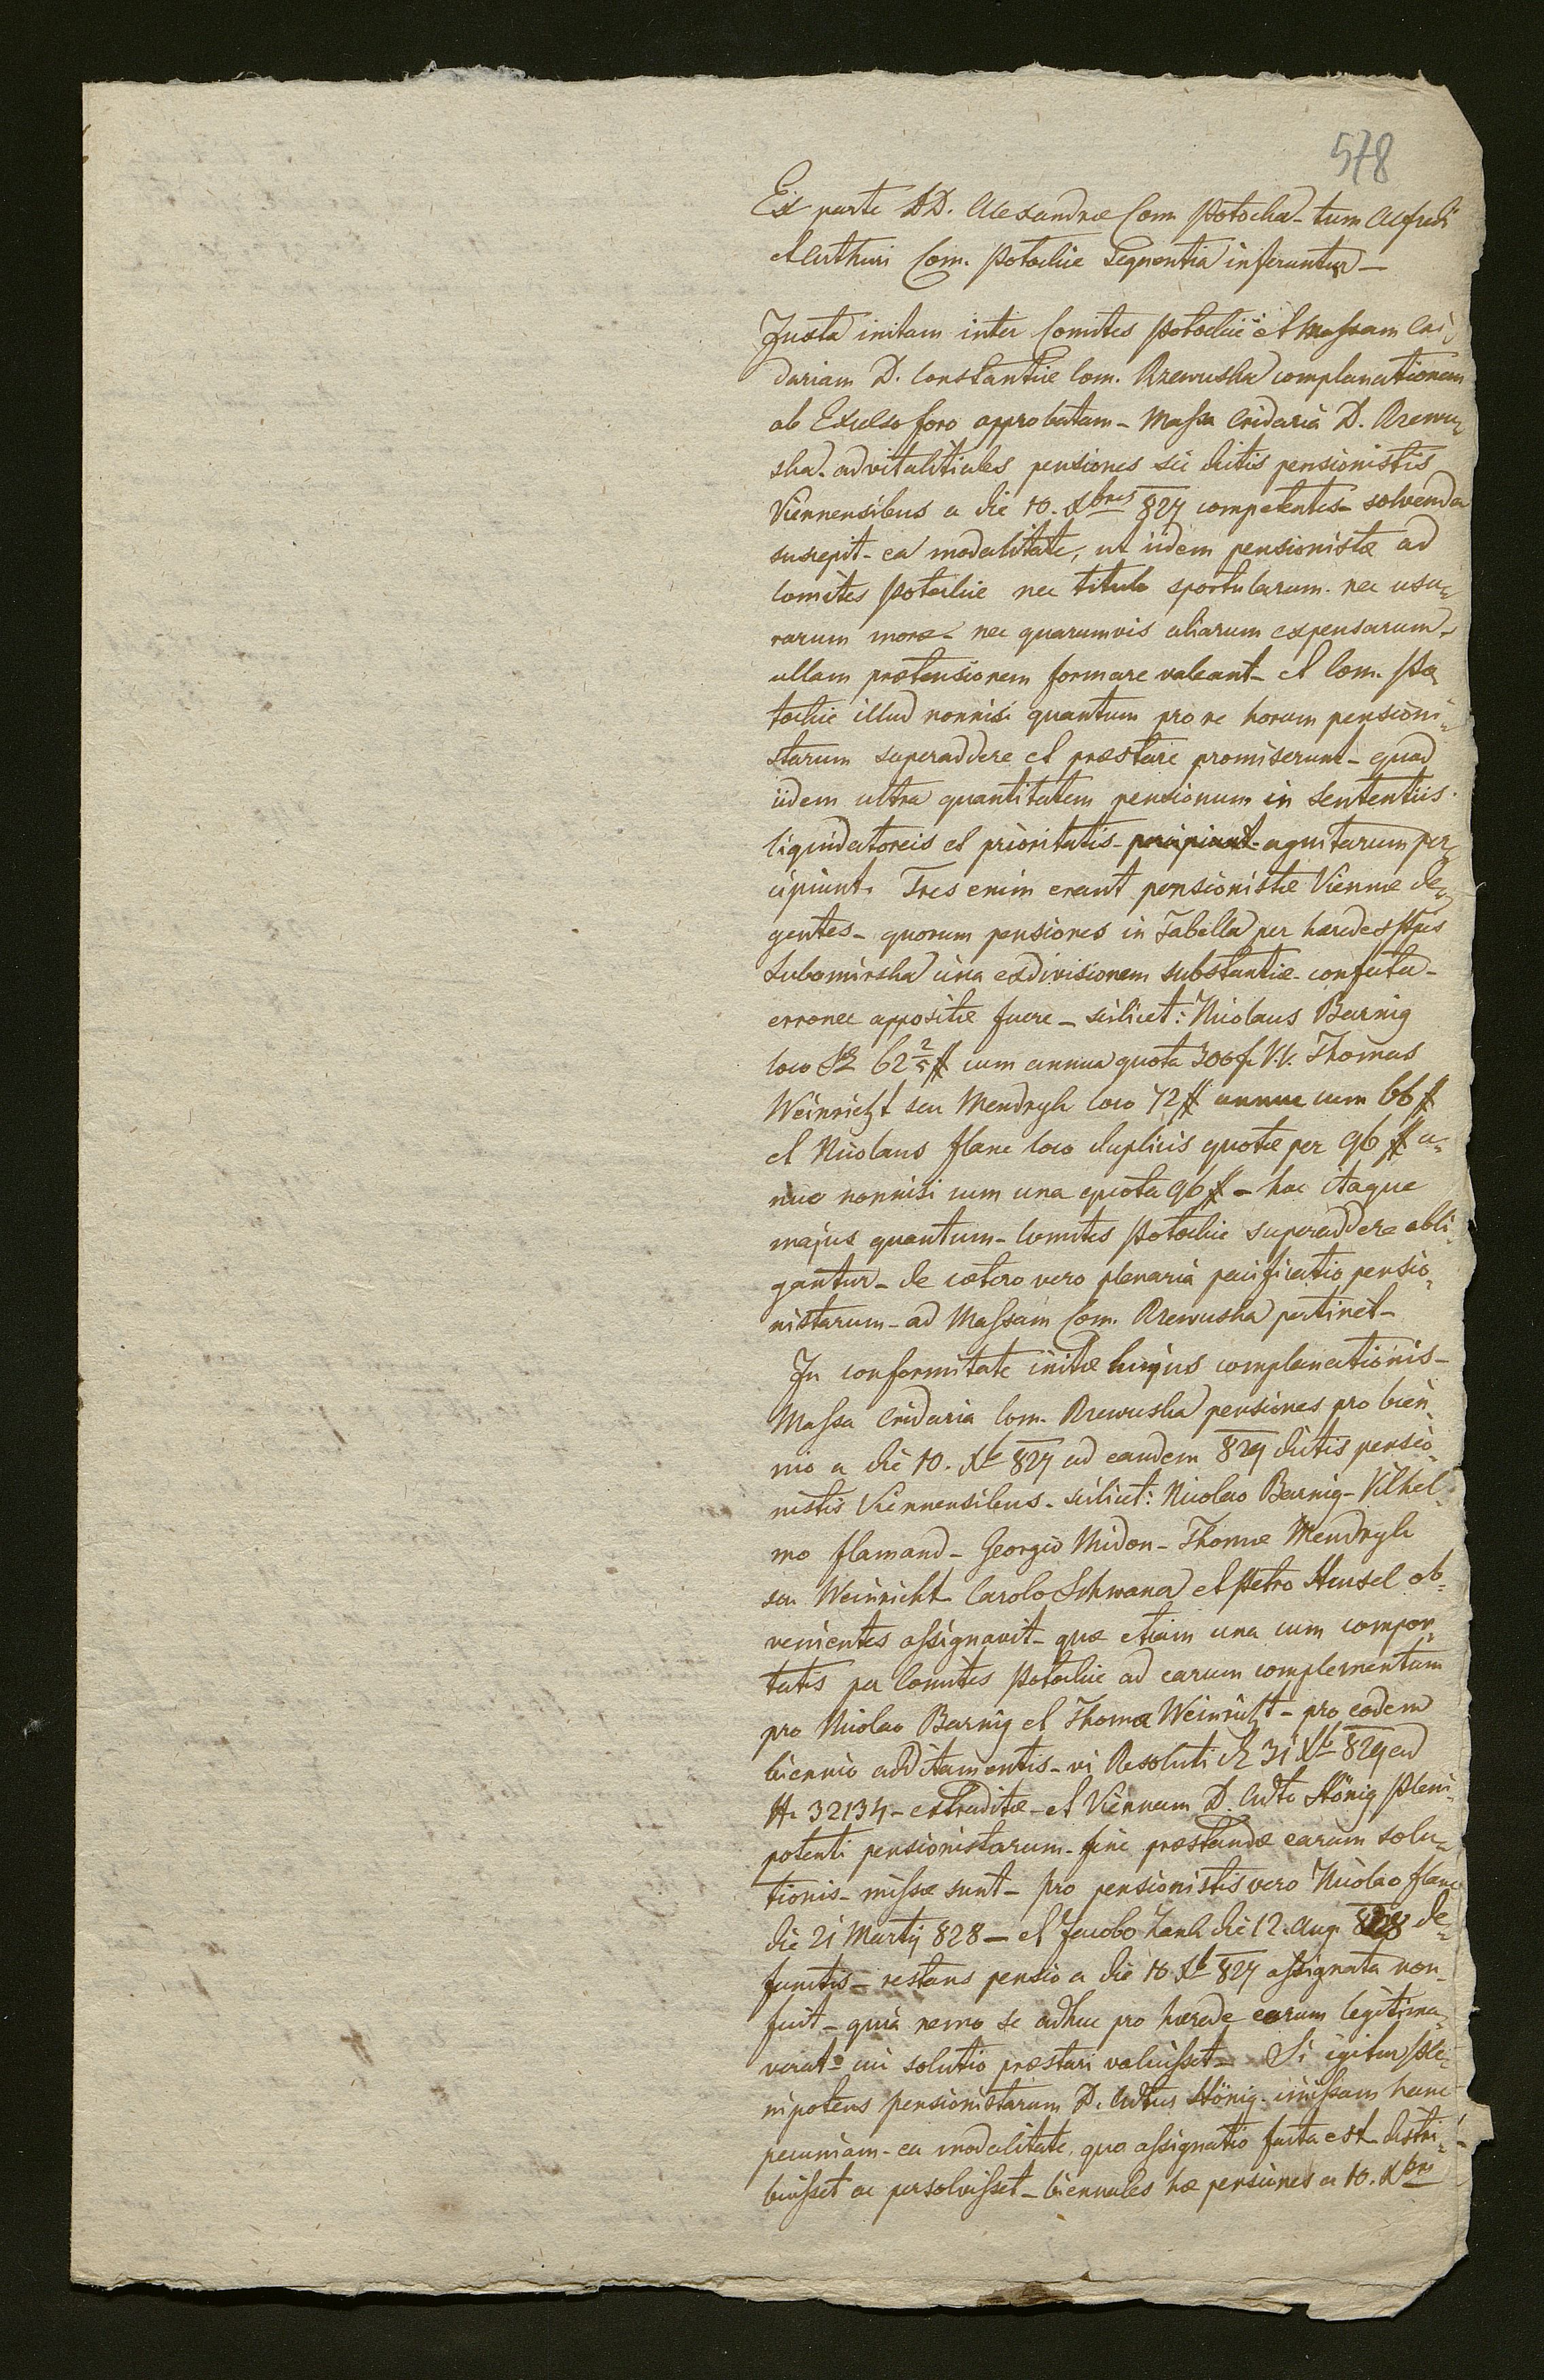 578
Ex parte DD. Alexandræ Com Potocka - tum Alfredi
et Arthuri Com. Potockie sequentia inferuntur —
Juxta initam inter Comites Potockie et Massam Cri
dariam D. Constantiæ Com. Rzewuska complanationem
ab Excelso foro approbatam - Massa Cridaria D. Rzewu=
ska - advitalitiales pensiones sic dictis pensionistis
Viennensibus a die 10. Xbris 827 competentes - solvenda
suscepit - ea modalitate, ut iidem pensionistæ ad
Comites Potockie nec titulo sportularum - nec usu=
rarum moræ - nec quarumvis aliarum expensarum -
ullam prætensionem formare valeant - et Com. Po
tockie illud nonnisi quantum pro re horum pensioni=
starum superaddere et præstare promiserunt - quod
iidem ultra quantitatem pensionum in Sententiis
liquidatoreis et prioritatis - percipiunt - agnitarum per
cipiunt. Tres enim erant pensionistæ Viennæ de=
gentes - quorum pensiones in Tabella per hæredes
Lubomirska una exdivisionem substantiæ - confecta -
erronee appositæ fuere - scilicet: Nicolaus Barnig
loco 62 2/5 # cum annua quota 300 f V.V. Thomas
Weinricht seu Mendryk loco 72 # annue cum 66 #
et Nicolaus flanc loco duplicis quotæ per 96 # a=
nuo nonnisi cum una quota 96 # - hoc itaque
majus quantum - Comites Potockie superaddere obli
gantur - de cætero vero plenaria pacificatio pensio=
nistarum - ad Massam Com. Rzewuska pertinet -
In conformitate initæ hujus complanationis -
Massa Cridaria Com. Rzewuska pensiones pro bien
nio a die 10. Xb 827 ad eandem 829 dictis pensio=
nistis Viennensibus - scilicet: Nicolao Barnig - Vilhel
mo flamand - Georgio Midon - Thomæ Mendryk
seu Weinricht Carolo Schwana et Petro Hensel ob=
venientes assignavit - quæ etiam una cum compor=
tatis per Comites Potockie ad earum complementum
pro Nicolao Barnig et Thoma Weinricht - pro eodem
biennio additamentis - vi Resoluti 31 Xb 829 ad
N. 32134 - extraditæ - et Viennam D. Adto Hönig Pleni=
potenti pensionistarum - fine præstandæ earum solu=
tionis - missæ sunt - pro pensionistis vero Nicolao flanc
die 21 Martij 828 — et Jacobo Zank die 12. Aug 828 de=
functis - restans pensio a die 10 Xb 827 assignata non
fuit - quia nemo se adhuc pro hærede eorum legitima=
verat - cui solutio præstari valuisset - Si igitur Ple=
nipotens pensionistarum D. Adtus Hönig - missam hanc
pecuniam - ea modalitate, qua assignatio facta est distri=
buisset ac persolvisset - biennales hæ pensiones a 10. Xbris